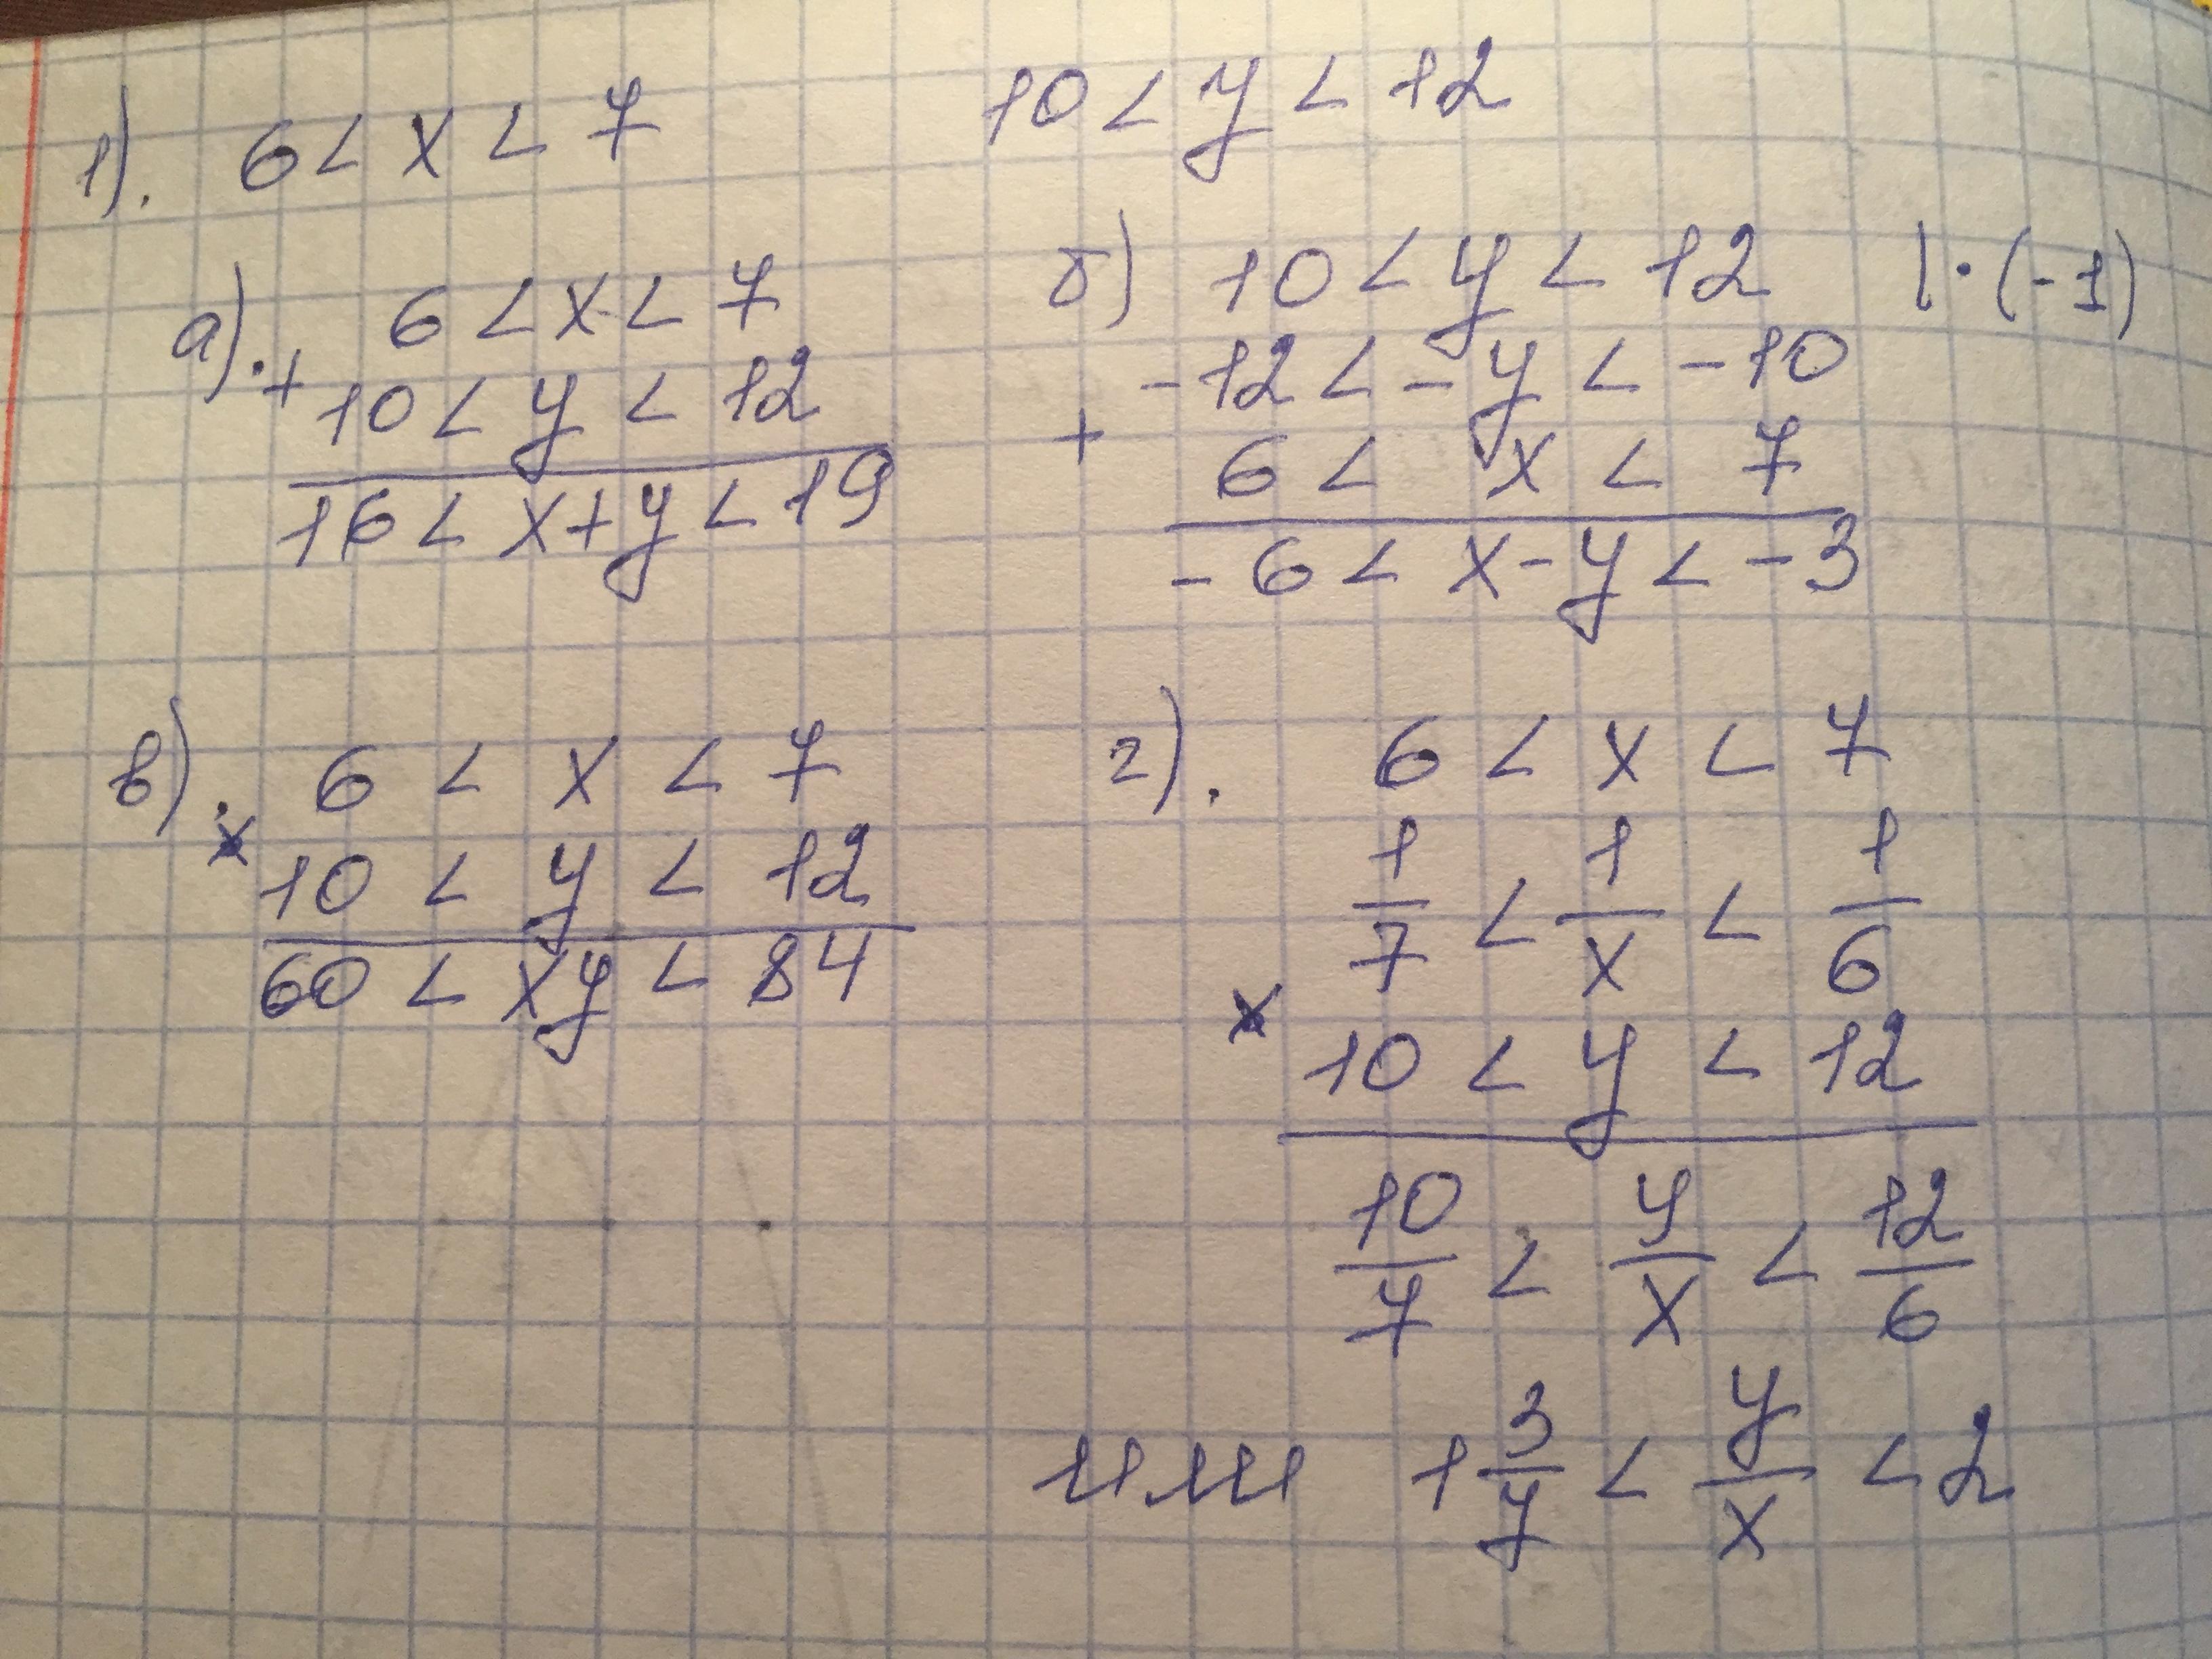 1). 6 < x < 7 10 < y < 12
а). 6 < x < 7
+ 10 < y < 12
16 < x+y < 19
б) 10 < y < 12 | · (-1)
-12 < -y < -10
+ 6 < x < 7
-6 < x-y < -3
в). 6 < x < 7
x 10 < y < 12
60 < xy < 84
г). 6 < x < 7
1/7 < 1/x < 1/6
x 10 < y < 12
10/7 < y/x < 12/6
или 1 3/7 < y/x < 2